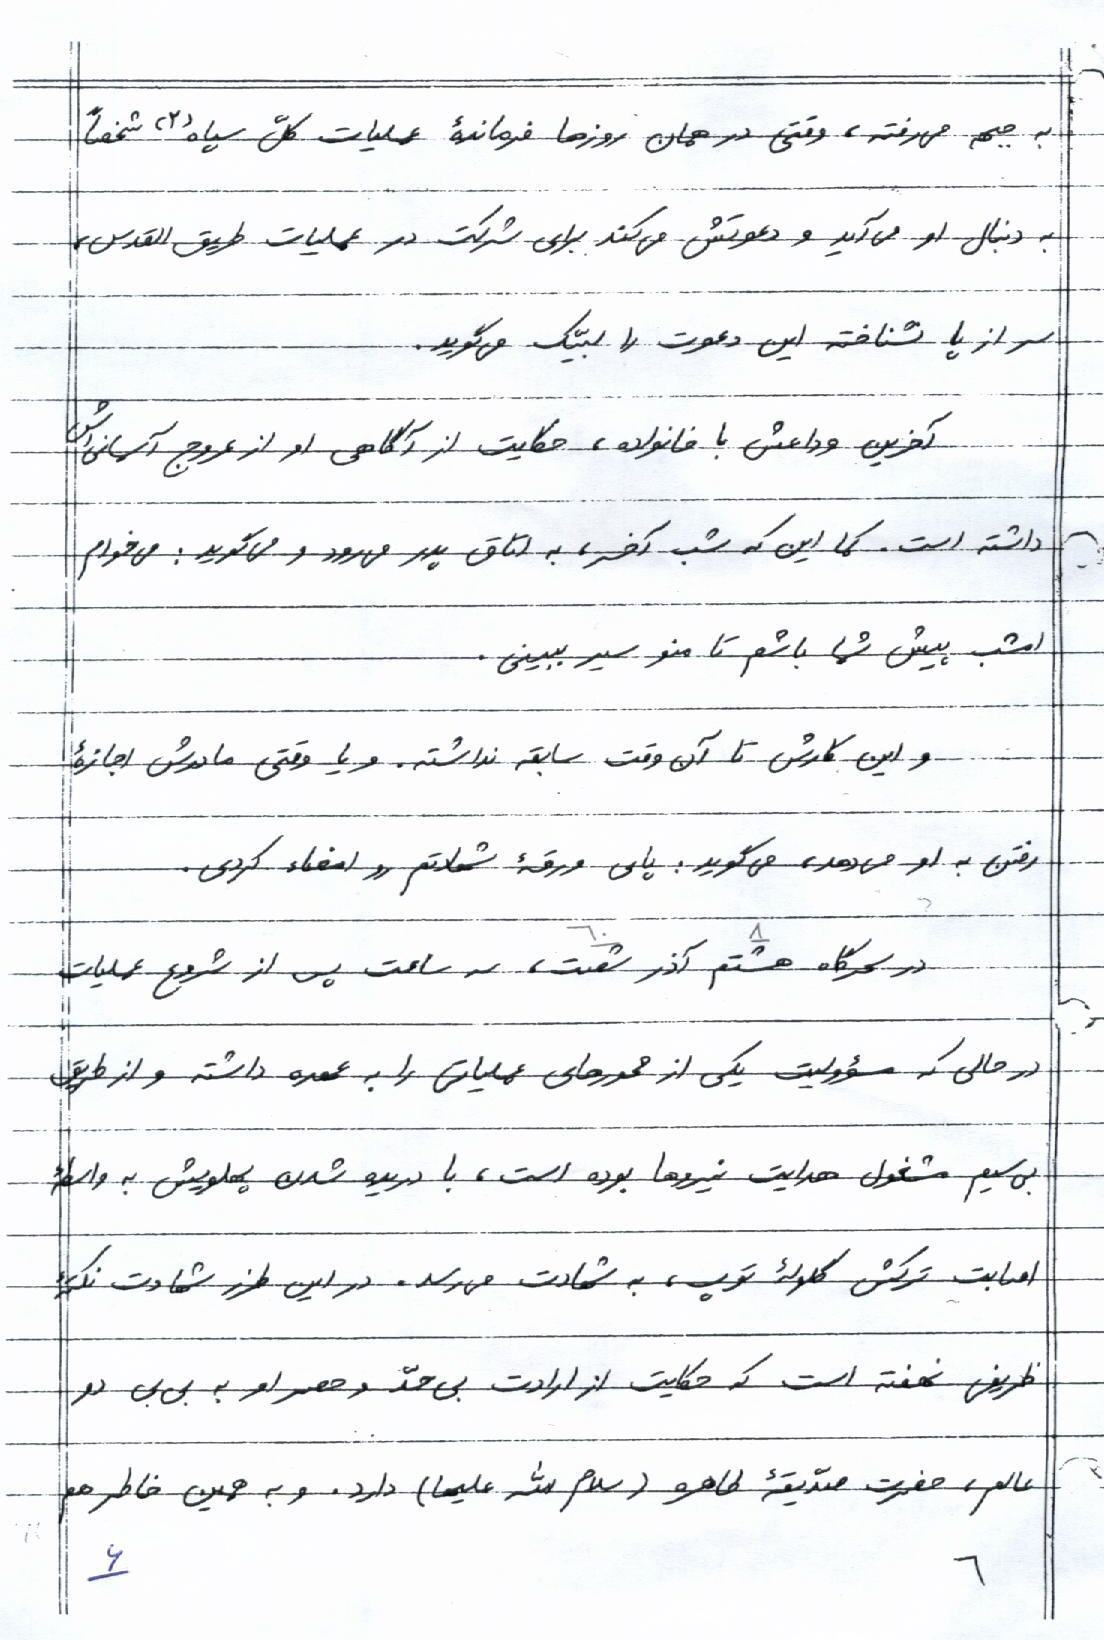 به جبهه می‌رفته، وقتی در همان روزها فرماندهٔ عملیات کلّ سپاه(۲) شخصاً
به دنبال او می‌آید و دعوتش می‌کند برای شرکت در عملیات طریق القدس،
سر از پا نشناخته این دعوت را لبیّک می‌گوید.
آخرین وداعش با خانواده، حکایت از آگاهی او از عروج آسمانی‌اش
داشته است. کما این که شب آخر، به اتاق پدر می‌رود و می‌گوید: می‌خوام
امشب پیش شما باشم تا منو سیر ببینی.
و این کارش تا آن وقت سابقه نداشته. و یا وقتی مادرش اجازهٔ
رفتن به او می‌دهد، می‌گوید: پای ورقهٔ شهادتم رو امضاء کردی.
۸ ٦۰
در سحرگاه هشتم آذر شصت، سه ساعت پس از شروع عملیات
در حالی که مسؤولیت یکی از محورهای عملیاتی را به عهده داشته و از طریق
بی‌سیم مشغول هدایت نیروها بوده است، با دریده شدن پهلویش به واسطهٔ
اصابت ترکش گلولهٔ توپ، به شهادت می‌رسد. در این طرز شهادت نکتهٔ
ظریفی نهفته است که حکایت از ارادت بی حدّ و حصر او به بی‌بی دو
عالم، حضرت صدّیقهٔ طاهره (سلام الله علیها) دارد. و به همین خاطر هم
٦ ۶